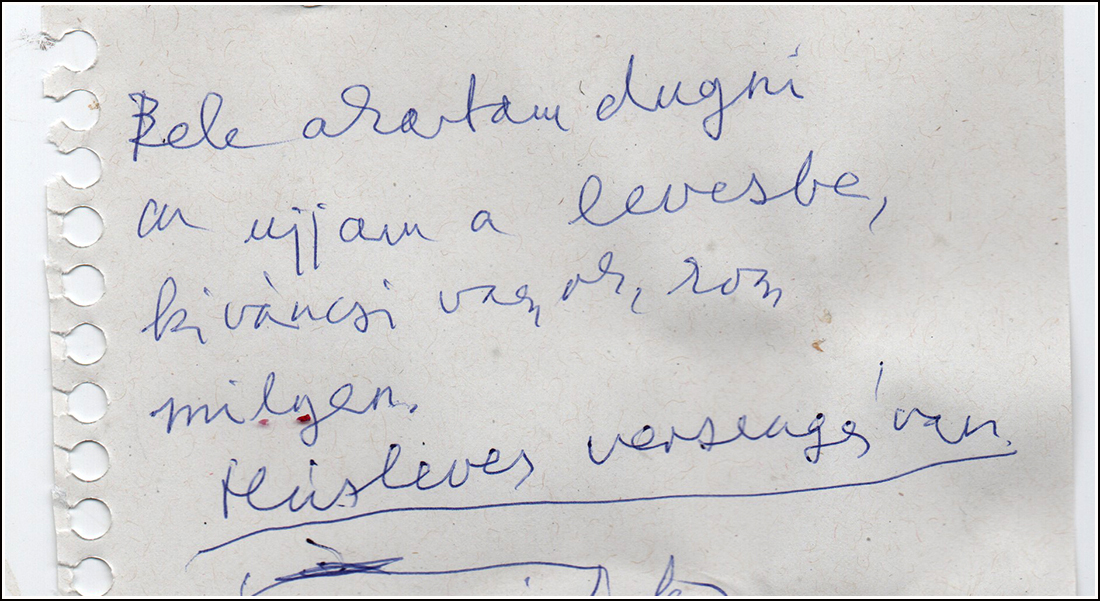 Bele akartam dugni
az ujjam a levesbe,
kiváncsi vagyok, hogy
milyen.
Húsleves van.